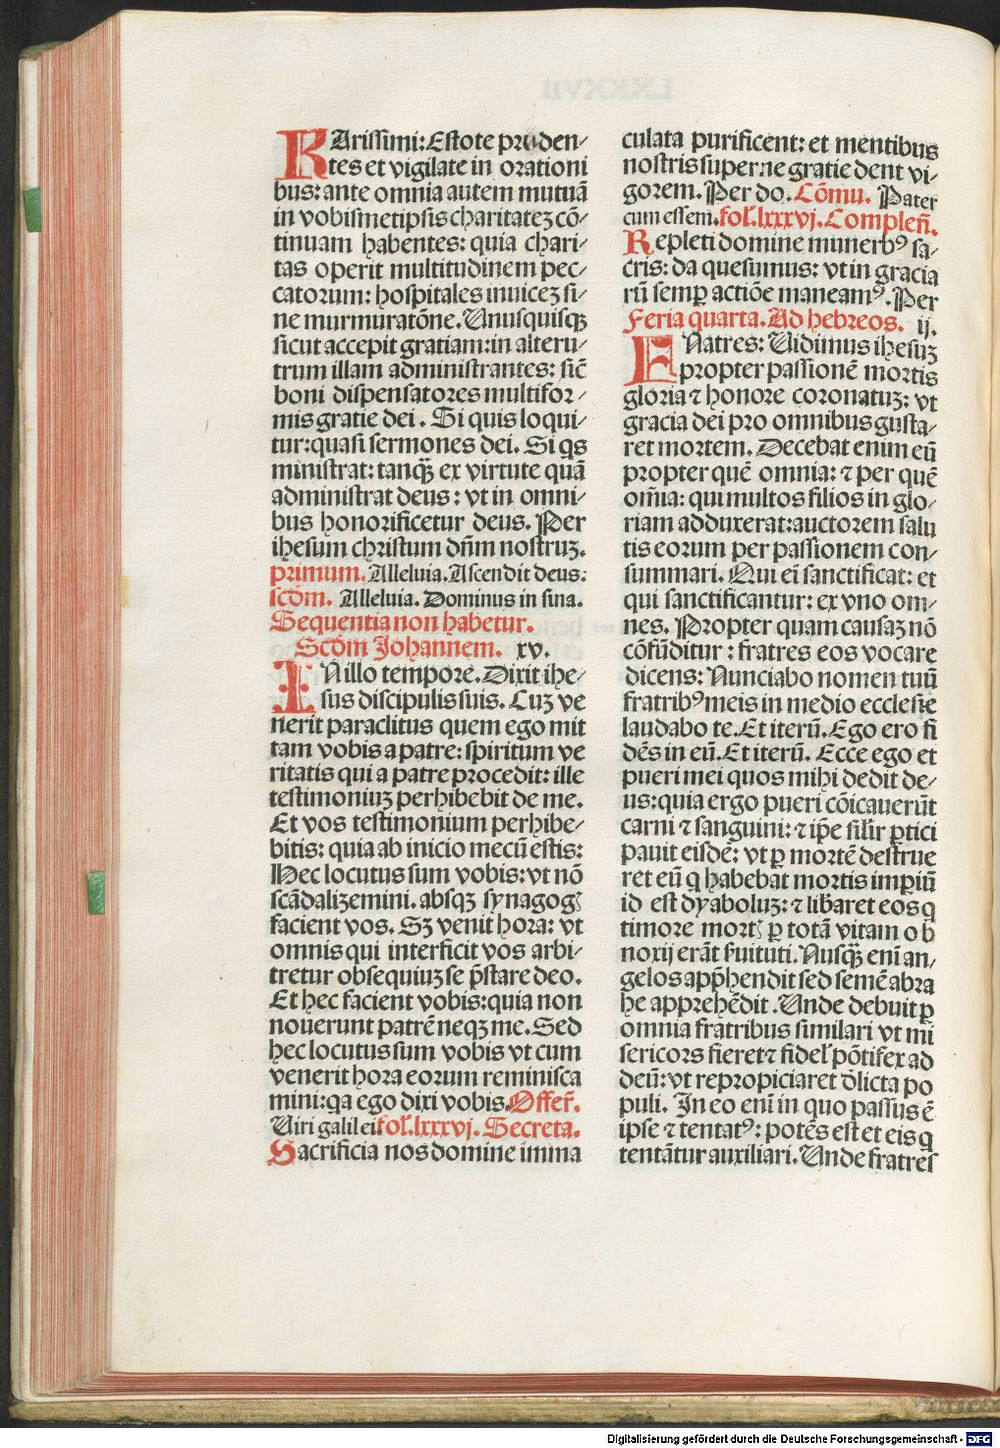 KArissimi: Estote pruden⸗
tes et vigilate in orationi
bus: ante omnia autem mutuā
in vobismetipsis charitatez cō⸗
tinuam habentes: quia chari⸗
tas operit multitudinem pec⸗
catorum: hospitales inuicez si⸗
ne murmuratōne. Unusquisqꝫ
sicut accepit gratiam: in alteru⸗
trum illam administrantes: sic̄
boni dispensatores multifor⸗
mis gratie dei. Si quis loqui⸗
tur: quasi sermones dei. Si qs
ministrat: tanqꝫ̄ ex virtute quā
administrat deus: vt in omni⸗
bus honorificetur deus. Per
ihesum christum dn̄m nostruz.
primum. Alleluia. Ascendit deus:
scd̄m. Alleluia. Dominus in sina.
Sequentia non habetur.
Scd̄m Johannem. xv.
IN illo tempore. Dixit ihe⸗
sus discipulis suis. Cuz ve
nerit paraclitus quem ego mit
tam vobis a patre: spiritum ve
ritatis qui a patre procedit: ille
testimoniuz perhibebit de me.
Et vos testimonium perhibe⸗
bitis: quia ab inicio mecū estis:
Hec locutus sum vobis: vt nō
scādalizemini. absqꝫ synagogꝭ
facient vos. Sꝫ venit hora: vt
omnis qui interficit vos arbi⸗
tretur obsequiuz se p̄stare deo.
Et hec facient vobis: quia non
nouerunt patrē neqꝫ me. Sed
hec locutus sum vobis vt cum
venerit hora eorum reminisca
mini: qa ego dixi vobis. Offer̄.
Viri galilei fol̄. lxxxvj. Secreta.
Sacrificia nos domine imma
culata purificent: et mentibus
nostris superne gratie dent vi⸗
gorem. Per do. Cōmu. Pater
cum essem. fol̄. lxxxvj. Complen̄.
Repleti domine munerbꝰ sa⸗
cris: da quesumus: vt in gracia
rū semꝑ actiōe maneamꝰ. Per
Feria quarta. Ad hebreos. ij.
FRatres: Vidimus ihesuz
propter passionē mortis
gloria ⁊ honore coronatuz: vt
gracia dei pro omnibus gusta⸗
ret mortem. Decebat enim eū
propter quē omnia: ⁊ per quē
om̄ia: qui multos filios in glo⸗
riam adduxerat: auctorem salu
tis eorum per passionem con⸗
summari. Qui ei̅ sanctificat: et
qui sanctificantur: ex vno om⸗
nes. Propter quam causaz nō
cōfūditur: fratres eos vocare
dicens: Nunciabo nomen tuū
fratribꝰ meis in medio ecclesie
laudabo te. Et iterū. Ego ero fi
dēs in eū. Et iterū. Ecce ego et
pueri mei quos mihi dedit de⸗
us: quia ergo pueri cōicauerūt
carni ⁊ sanguini: ⁊ ip̄e silir̄ ꝑtici
pauit eisdē: vt ꝑ mortē destrue
ret eū q habebat mortis imꝑiū
id est dyaboluz: ⁊ lib̄aret eos q
timore mortꝭ ꝑ totā vitam ob
noxij erāt ẜuituti. Nusqꝫ̄ eni̅ an⸗
gelos app̄hendit sed semē abra
he apprehēdit. Unde debuit ꝑ
omnia fratribus similari vt mi
sericors fieret ⁊ fidel̄ pōtifex ad
deū: vt repropiciaret d̄licta po
puli. In eo eni̅ in quo passus ē
ipse ⁊ tentatꝰ: potēs est et eis q
tentātur auxiliari. Unde fratres
Digitalisierung gefördert durch die Deutsche Forschungsgemeinschaft - DFG